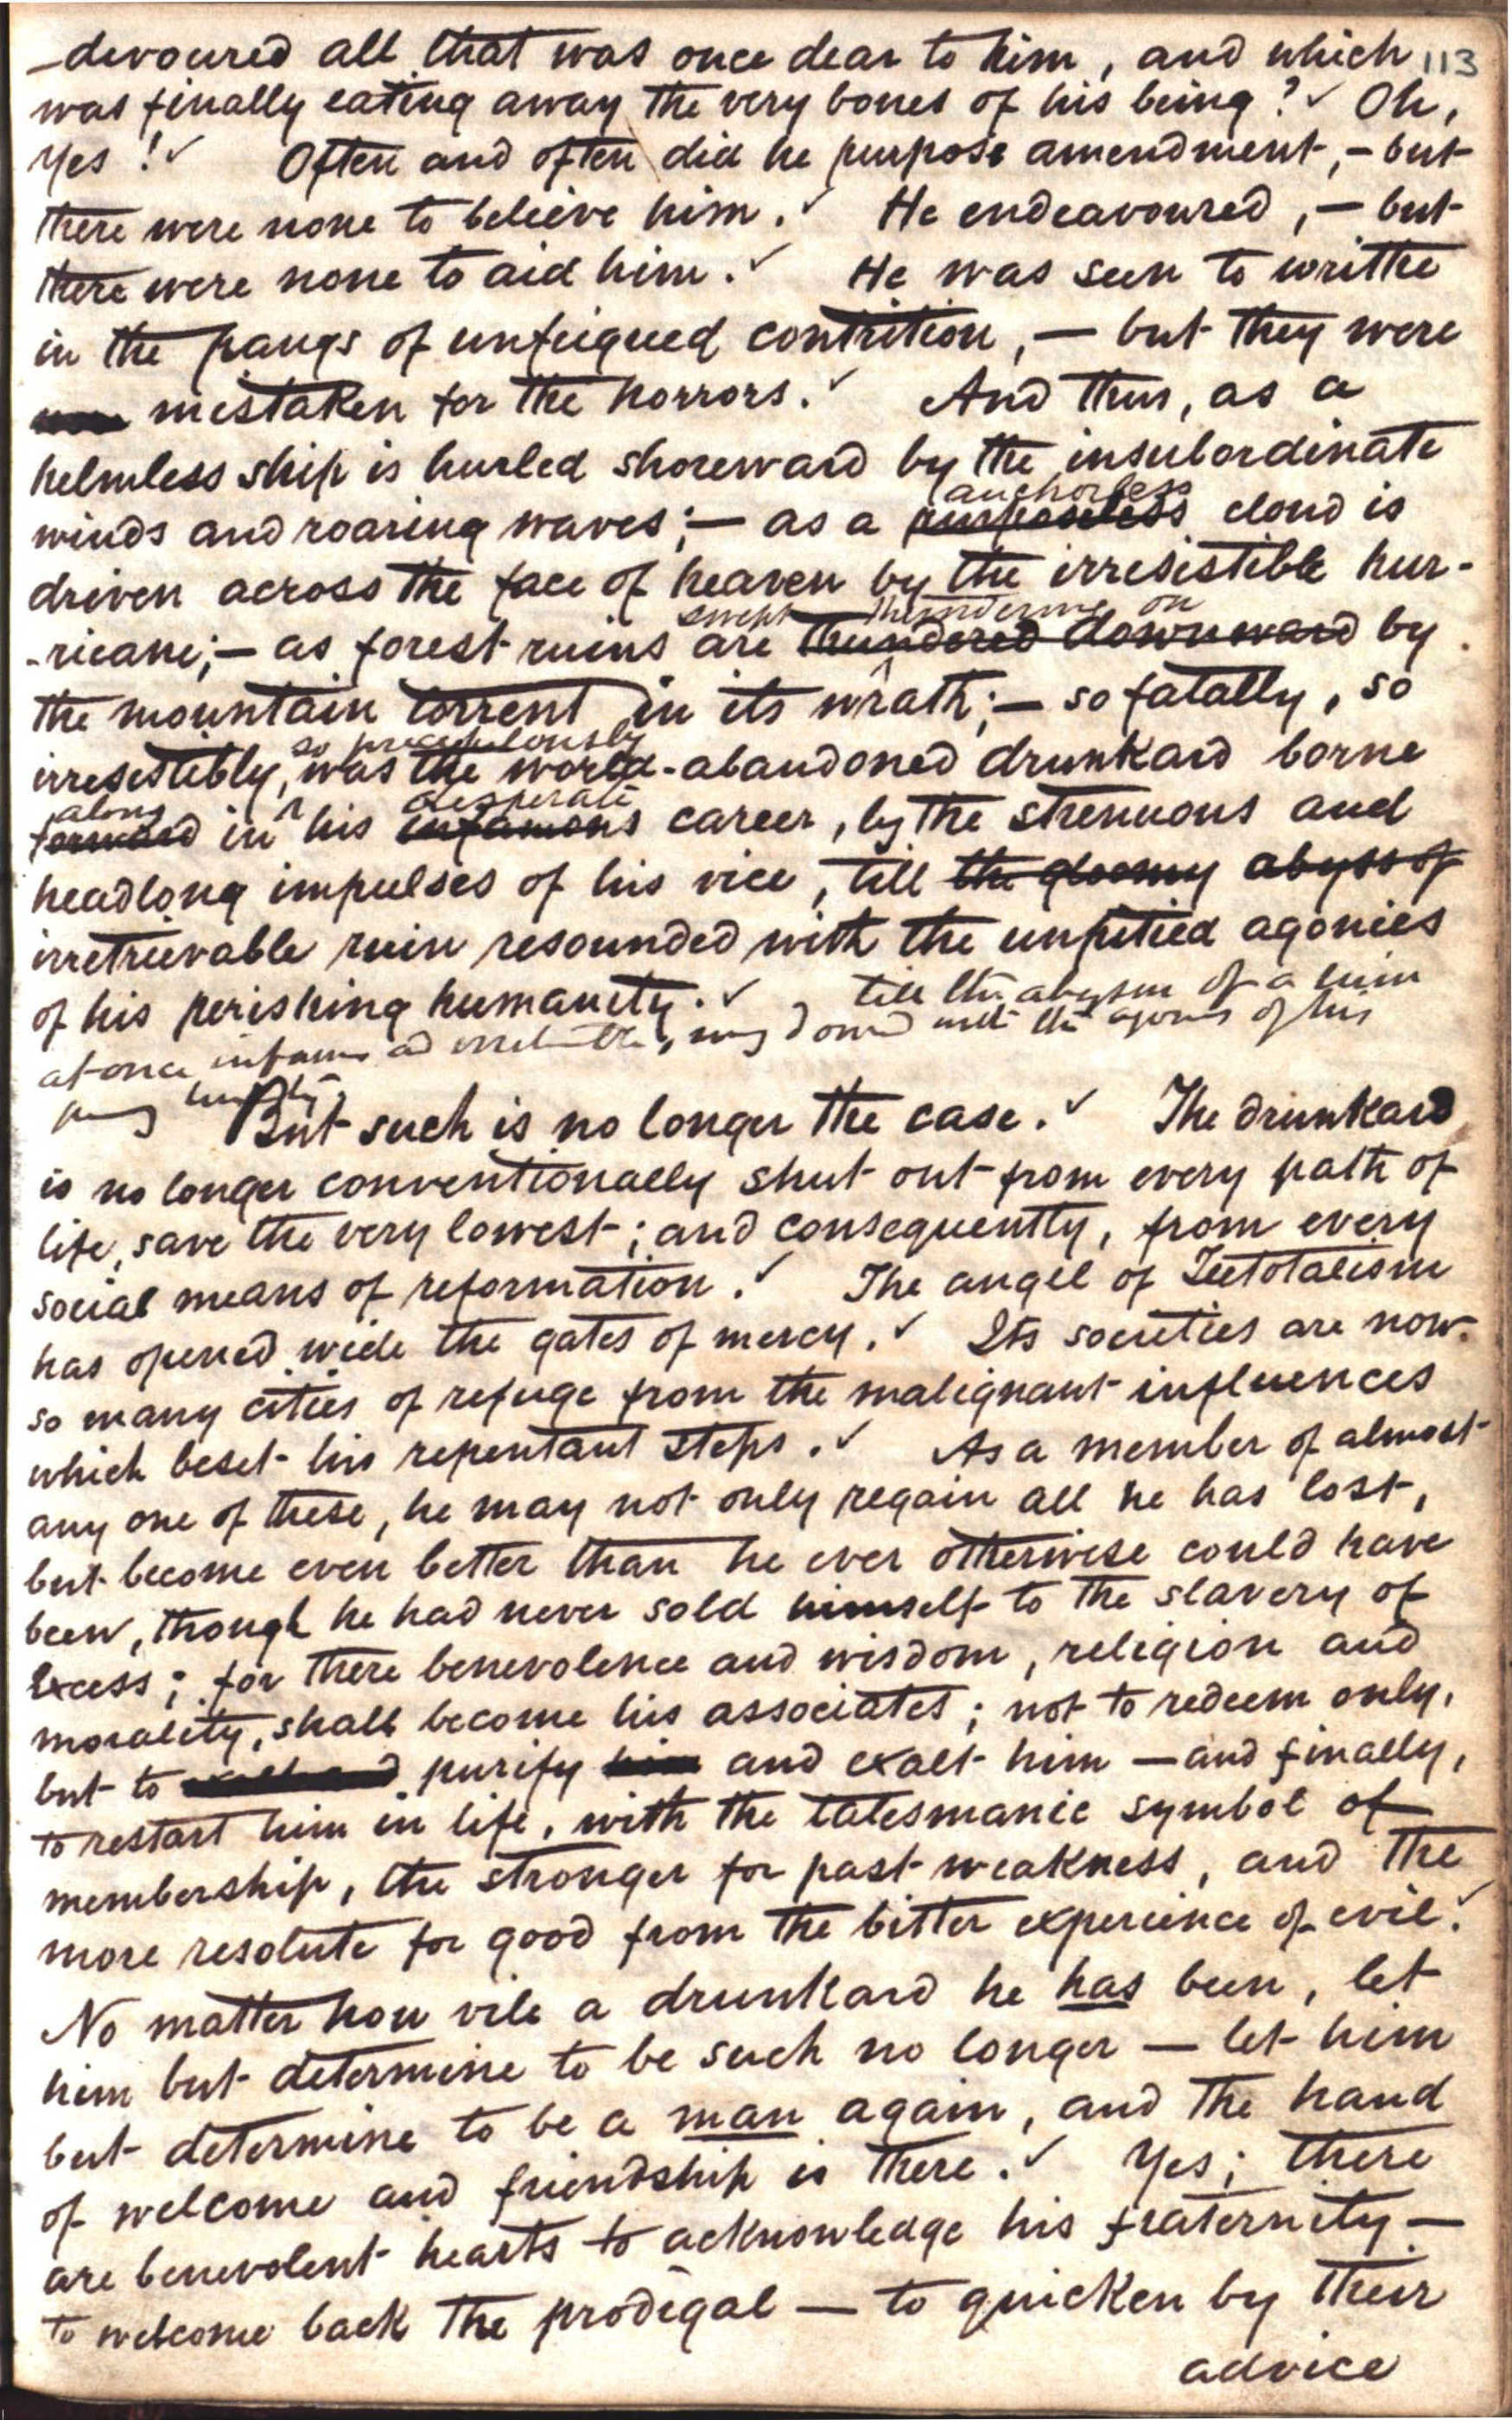 -devoured all that was once dear to him, and which 113
was finally eating away the very bones of his being?✓ Oh,
Yes!✓ Often and often did he purpose amendment,- but
there were none to believe him.✓ He endeavoured,— but
there were none to aid him.✓ He was seen to writhe
in the pangs of unfeigned contrition,— but they were
mistaken for the horrors.✓ And thus, as a
helmless ship is hurled shoreward by the insubordinate
anchorless
winds and roaring waves;— as a purposeless cloud is
driven across the face of heaven by the irresistible hur-
swept thundering on
-ricane;— as forest ruins are thundered downward by
the mountain torrent in its wrath;— so fatally, so
so precipitously
irresistibly, was the world-abandoned drunkard borne
along desperate
forward in his infamous career, by the strenuous and
headlong impulses of his vice, till the gloomy abyss of
irretrievable ruin resounded with the unpitied agonies
of his perishing humanity.✓ till the abysm of a ruin
at once with the agonies of his
But such is no longer the case.✓ The drunkard
is no longer conventionally shut out from every path of
life, save the very lowest; and consequently, from every
social means of reformation.✓ The angel of Teetotalism
has opened wide the gates of mercy.✓ Its societies are now
so many cities of refuge from the malignant influences
which beset his repentant steps.✓ As a member of almost
any one of these, he may not only regain all he has lost,
but become even better than he ever otherwise could have
been, though he had never sold himself to the slavery of
Excess; for there benevolence and wisdom, religion and
morality, shall become his associates; not to redeem only,
but to purify him and exalt him — and finally,
to restart him in life, with the talesmanic symbol of
membership, the stronger for past weakness, and the
more resolute for good from the bitter expereince of evil.✓
No matter how vile a drunkard he has been, let
him but determine to be such no longer — let him
but determine to be a man again, and the hand
of welcome and friendship is there.✓ Yes; there
are benevolent hearts to acknowledge his fraternity—
to welcome back the prodigal — to quicken by their
advice